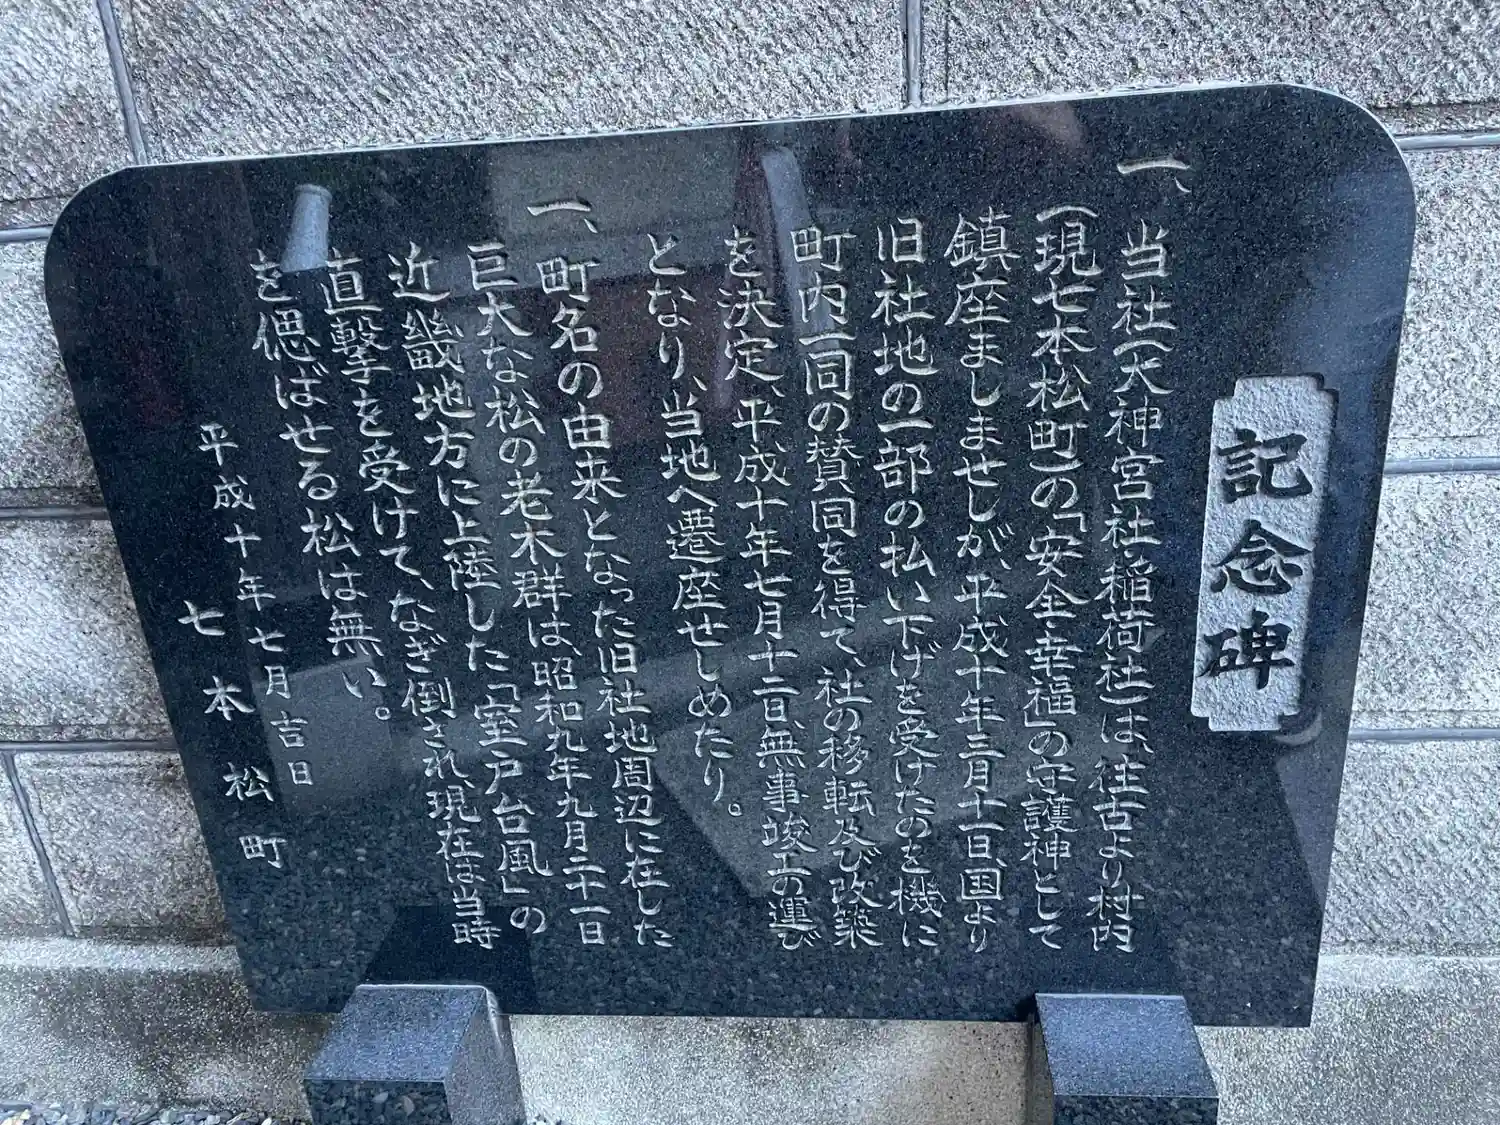 記念碑
一、当社(大神宮社・稲荷社)は、往古より村内
(現七本松町)の「安全・幸福」の守護神として
鎮座ましませしが、平成十年三月十一日、国より
旧社地の一部の払い下げを受けたのを機に
町内一同の賛同を得て、社の移転及び改築
を決定、平成十年七月十二日、無事竣工の運び
となり、当地へ遷座せしめたり。
一、町名の由来となった旧社地周辺に在した
巨大な松の老木群は、昭和九年九月二十一日
近畿地方に上陸した「室戸台風」の
直撃を受けて、なぎ倒され、現在は当時
を偲ばせる松は無い。
平成十年七月吉日
七本松町